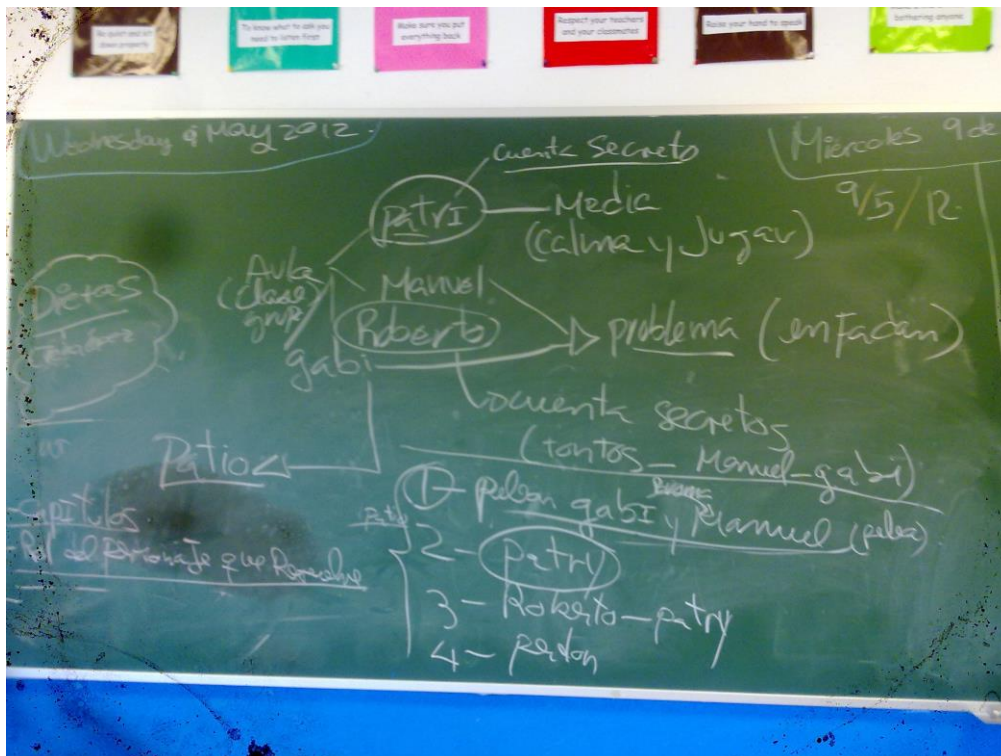 Be quiet and sit
down properly
To know what to ask you
need to listen first
Make sure you put
everything back
Respect your teachers
and your classmates
Raise your hand to speak
bothering anyone
Wednesday 9 May 2012.
Miercoles 9 de
9/5/12.
cuenta secreto
patri
Media
(calma y Jugar)
Aula
(clase
grup
Manuel
Roberto
gabi
problema (enfadan)
Dietas
cuenta secretos
(tontos - Manuel - gabi)
Patio
1 - pelean gabi y Manuel (pelea)
Patry
2 - patry
3 - Roberto - patry
4 - perdon
Capitulos
del Personaje que Resuelve